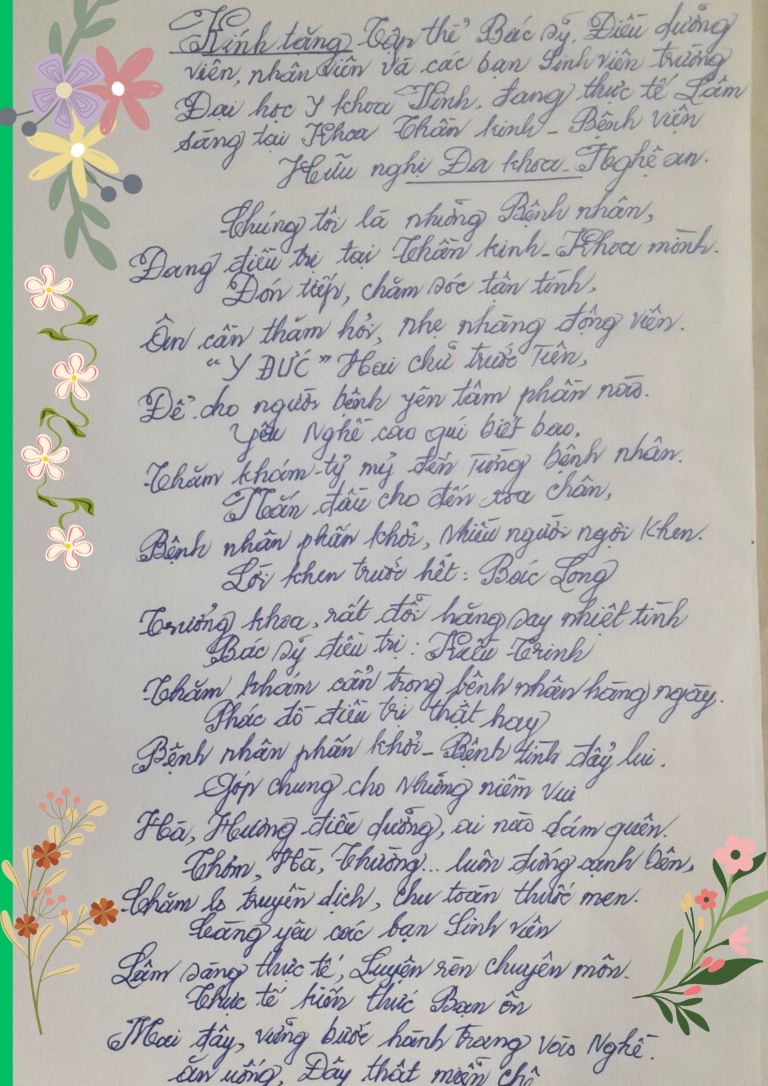 Kính tặng Tập thể Bác sỹ, Điều dưỡng
viên, nhân viên và các bạn Sinh viên trường
Đại học Y khoa Vinh, đang thực tế Lâm
sàng tại Khoa Thần kinh - Bệnh viên
Hữu nghị Đa khoa - Nghệ an.
Chúng tôi là những Bệnh nhân,
Đang điều trị tại Thần kinh - Khoa mình.
Đón tiếp, chăm sóc tận tình,
Ân cần thăm hỏi, nhẹ nhàng động viên.
"Y ĐỨC" Hai chữ trước Tiên,
Để cho người bệnh yên tâm phần nào.
Yêu Nghề cao quí biết bao,
Thăm khám tỷ mỷ đến Từng bệnh nhân.
Nắn đầu cho đến xoa chân,
Bệnh nhân phấn khởi, nhiều người ngợi Khen.
Lời khen trước hết: Bác Long
Trưởng khoa, rất đỗi hăng say nhiệt tình
Bác sỹ điều trị: Kiều Trinh
Thăm khám cẩn trọng bệnh nhân hàng ngày.
Phác đồ điều trị thật hay
Bệnh nhân phấn khởi - Bệnh tình đẩy lui.
Góp chung cho Những niềm vui
Hà, Hương điều dưỡng, ai nào dám quên.
Thơm, Hà, Thường... luôn đứng cạnh bên,
Chăm lo truyền dịch, chu toàn thuốc men.
Càng yêu các bạn Sinh viên
Lâm sàng thực tế, Luyện rèn chuyên môn.
Thực tế kiến thức Bạn ôn
Mai đây, vững bước hành trang vào Nghề.
ăn uống, Đây thật miễn chê